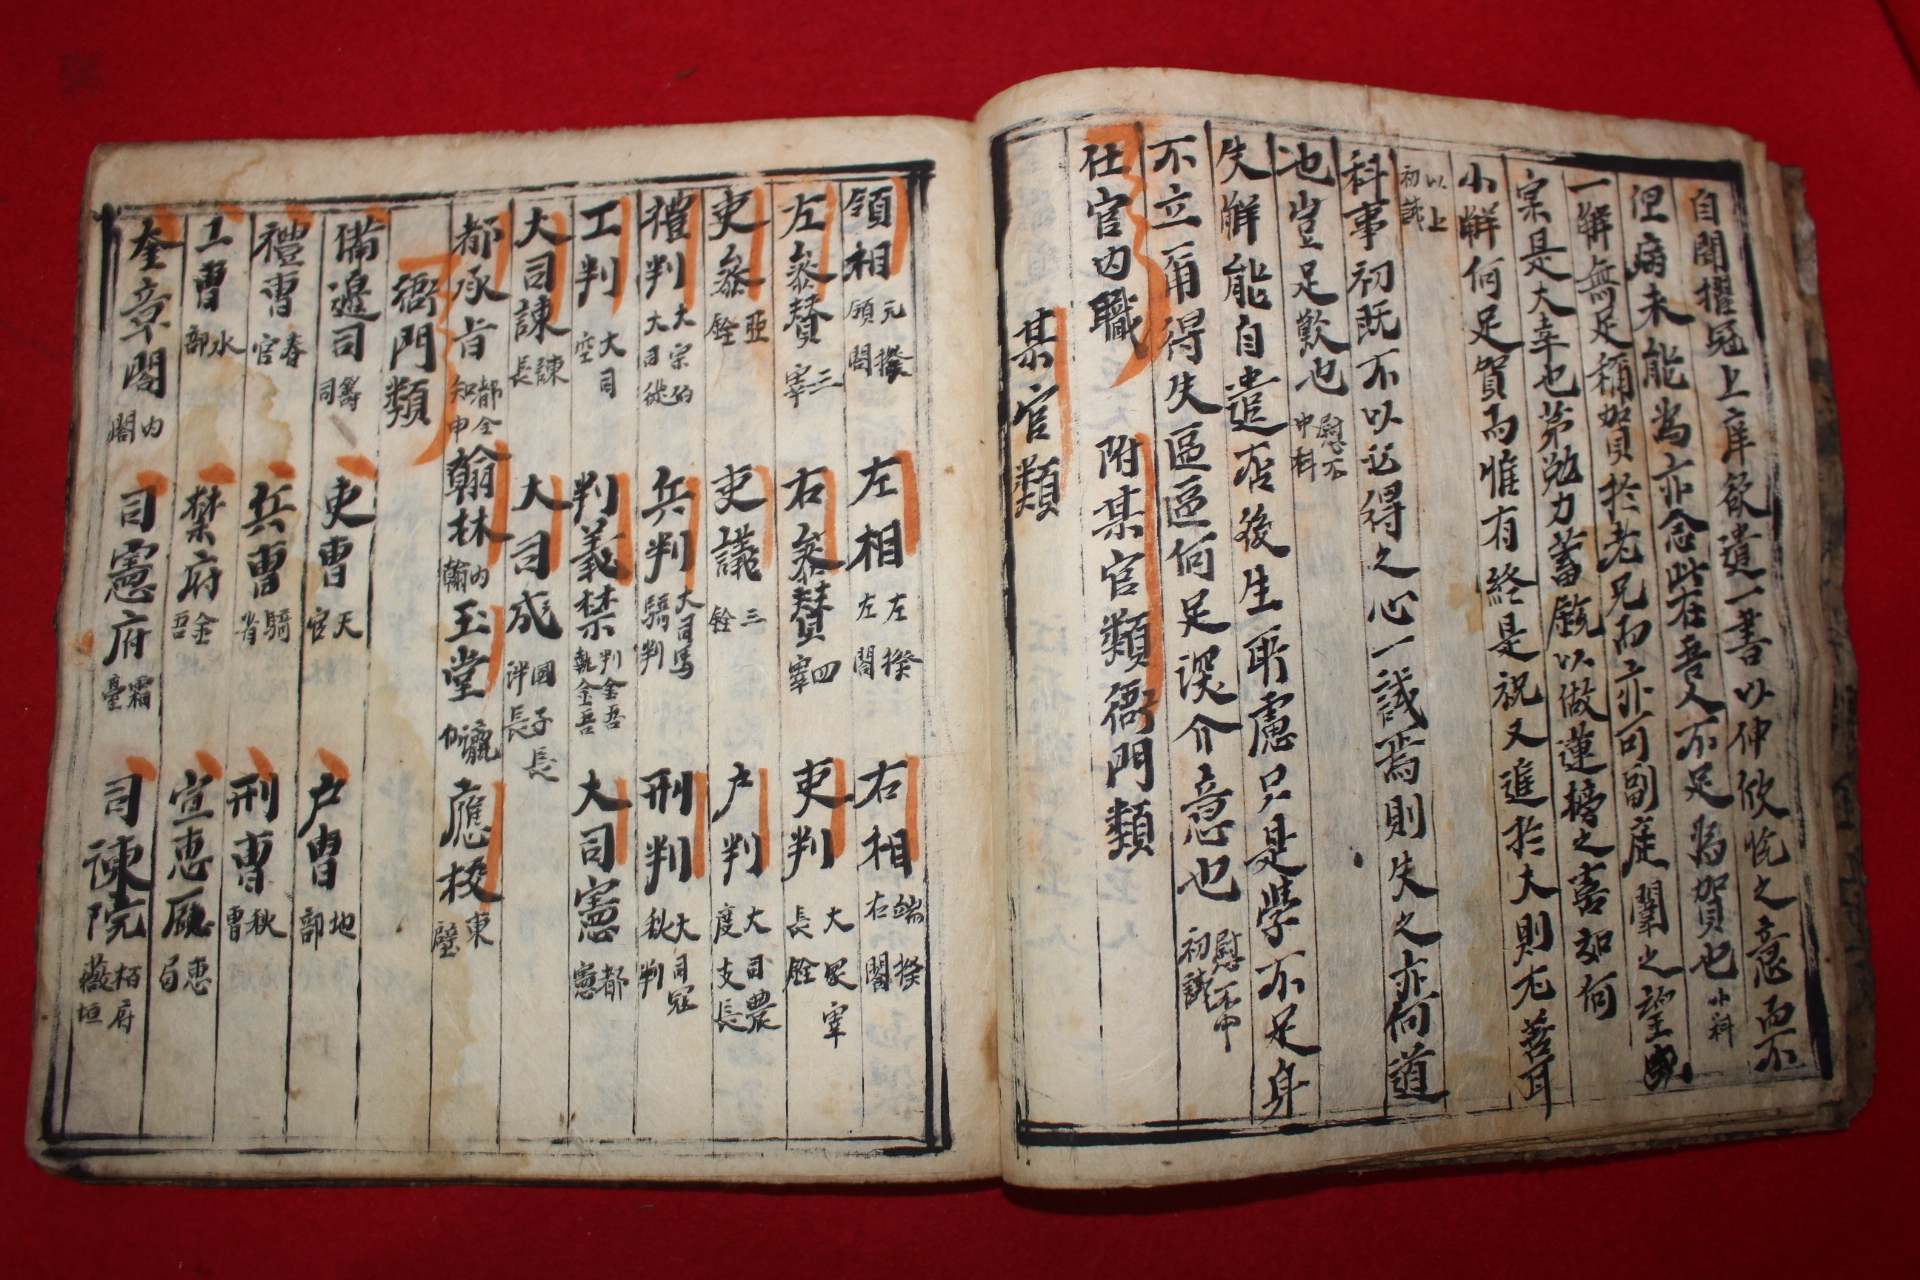 自聞擢冠上庠欲遣一書以伸欣悅之意而不
但病未能焉亦念此在吾人不足為賀也 小科
一觧無足稱賀於老兄而亦可副庭闈之望
宲是大幸也第勉力蓄銳以做蓮榜之喜如何
小觧何足賀而惟有終是祝又進於大則尤善耳
以上
初試
科事初既不以記得之心一試焉則失之亦何道
也豈足歎也 慰不
中科
失觧能自遣否後生所慮只是學不足身
不立甭得失區區何足深介意也 慰不中
初試
仕官内職 附某官類衙門類
某官類
領相 元揆 領閤 左相 左揆 左閤 右相 端揆 右閤
左參賛 三宰 右參賛 四宰 吏判 大冢宰 長銓
吏參 亞銓 吏議 三銓 户判 大司農 度支長
禮判 大宗伯 大司徒 兵判 大司馬 騎判 刑判 大司寇 秋判
工判 大司空 判義禁 判金吾 執金吾 大司憲 都憲
大司諫 諫長 大司成 國子長 泮長
都承旨 都令 知申 翰林 内翰 玉堂 應校 東壁
衙門類
備邊司 籌司 吏曹 天官 户曹 地部
禮曹 春官 兵曹 騎省 刑曹 秋曹
工曹 水部 禁府 金吾 宣惠厅 惠局
奎章閣 内閣 司憲府 霜臺 司諫院 栢府 薇垣